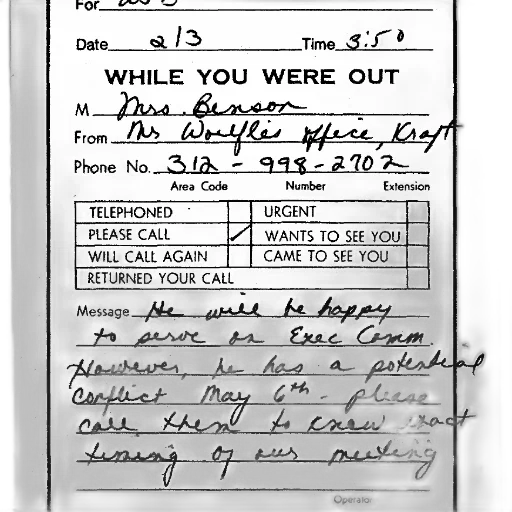 For
Date 2/3 Time 3:50
WHILE YOU WERE OUT
M Mrs. Benson
From Mr Woelfle's office, Kraft
Phone No. 312 - 998-2702
Area Code Number Extension
TELEPHONED URGENT
PLEASE CALL ✓ WANTS TO SEE YOU
WILL CALL AGAIN CAME TO SEE YOU
RETURNED YOUR CALL
Message He will be happy
to serve on Exec Comm.
However, he has a potential
conflict May 6th - please
call them to know exact
timing of our meeting
Operator